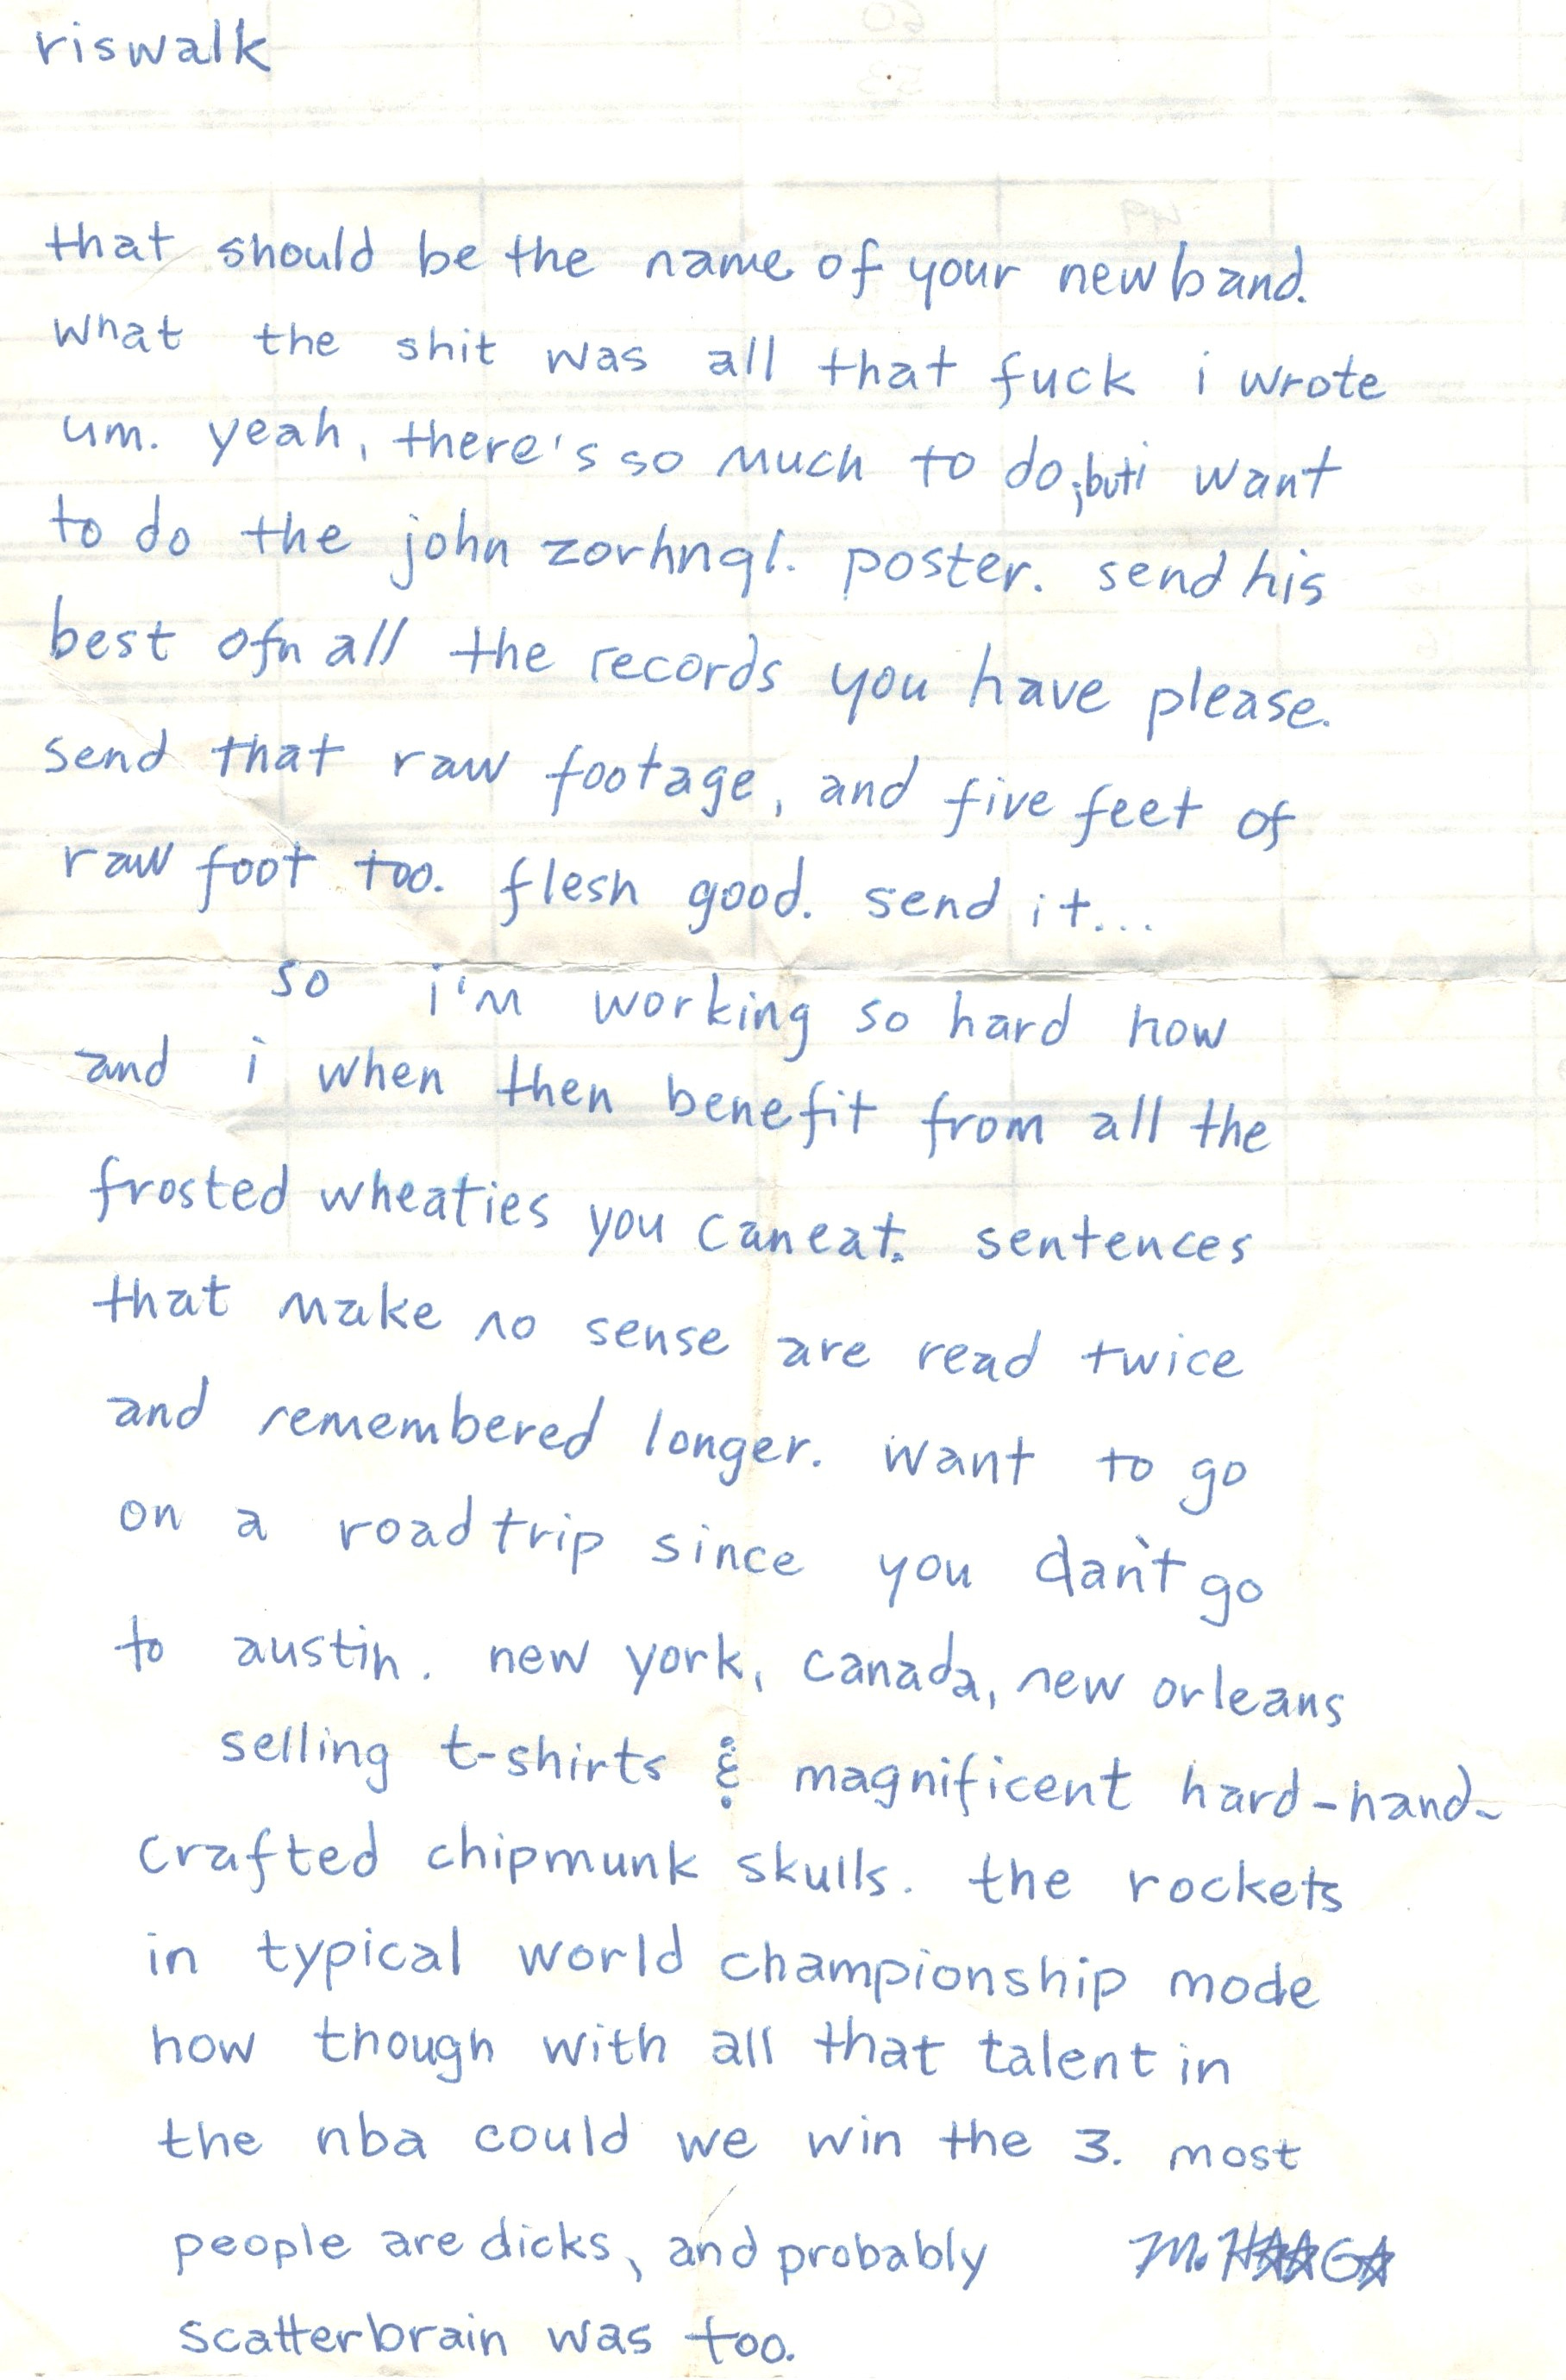 riswalk
that should be the name of your new band.
what the shit was all that fuck i wrote
um. yeah, there's so much to do, but i want
to do the john zorhnql. poster. send his
best ofn all the records you have please.
send that raw footage, and five feet of
raw foot too. flesh good. send it...
so i'm working so hard now
and i when then benefit from all the
frosted wheaties you can eat. sentences
that make no sense are read twice
and remembered longer. want to go
on a road trip since you dan't go
to austin. new york, canada, new orleans
selling t-shirts & magnificent hard-hand-
crafted chipmunk skulls. the rockets
in typical world championship mode
now though with all that talent in
the nba could we win the 3. most
people are dicks, and probably
scatterbrain was too.